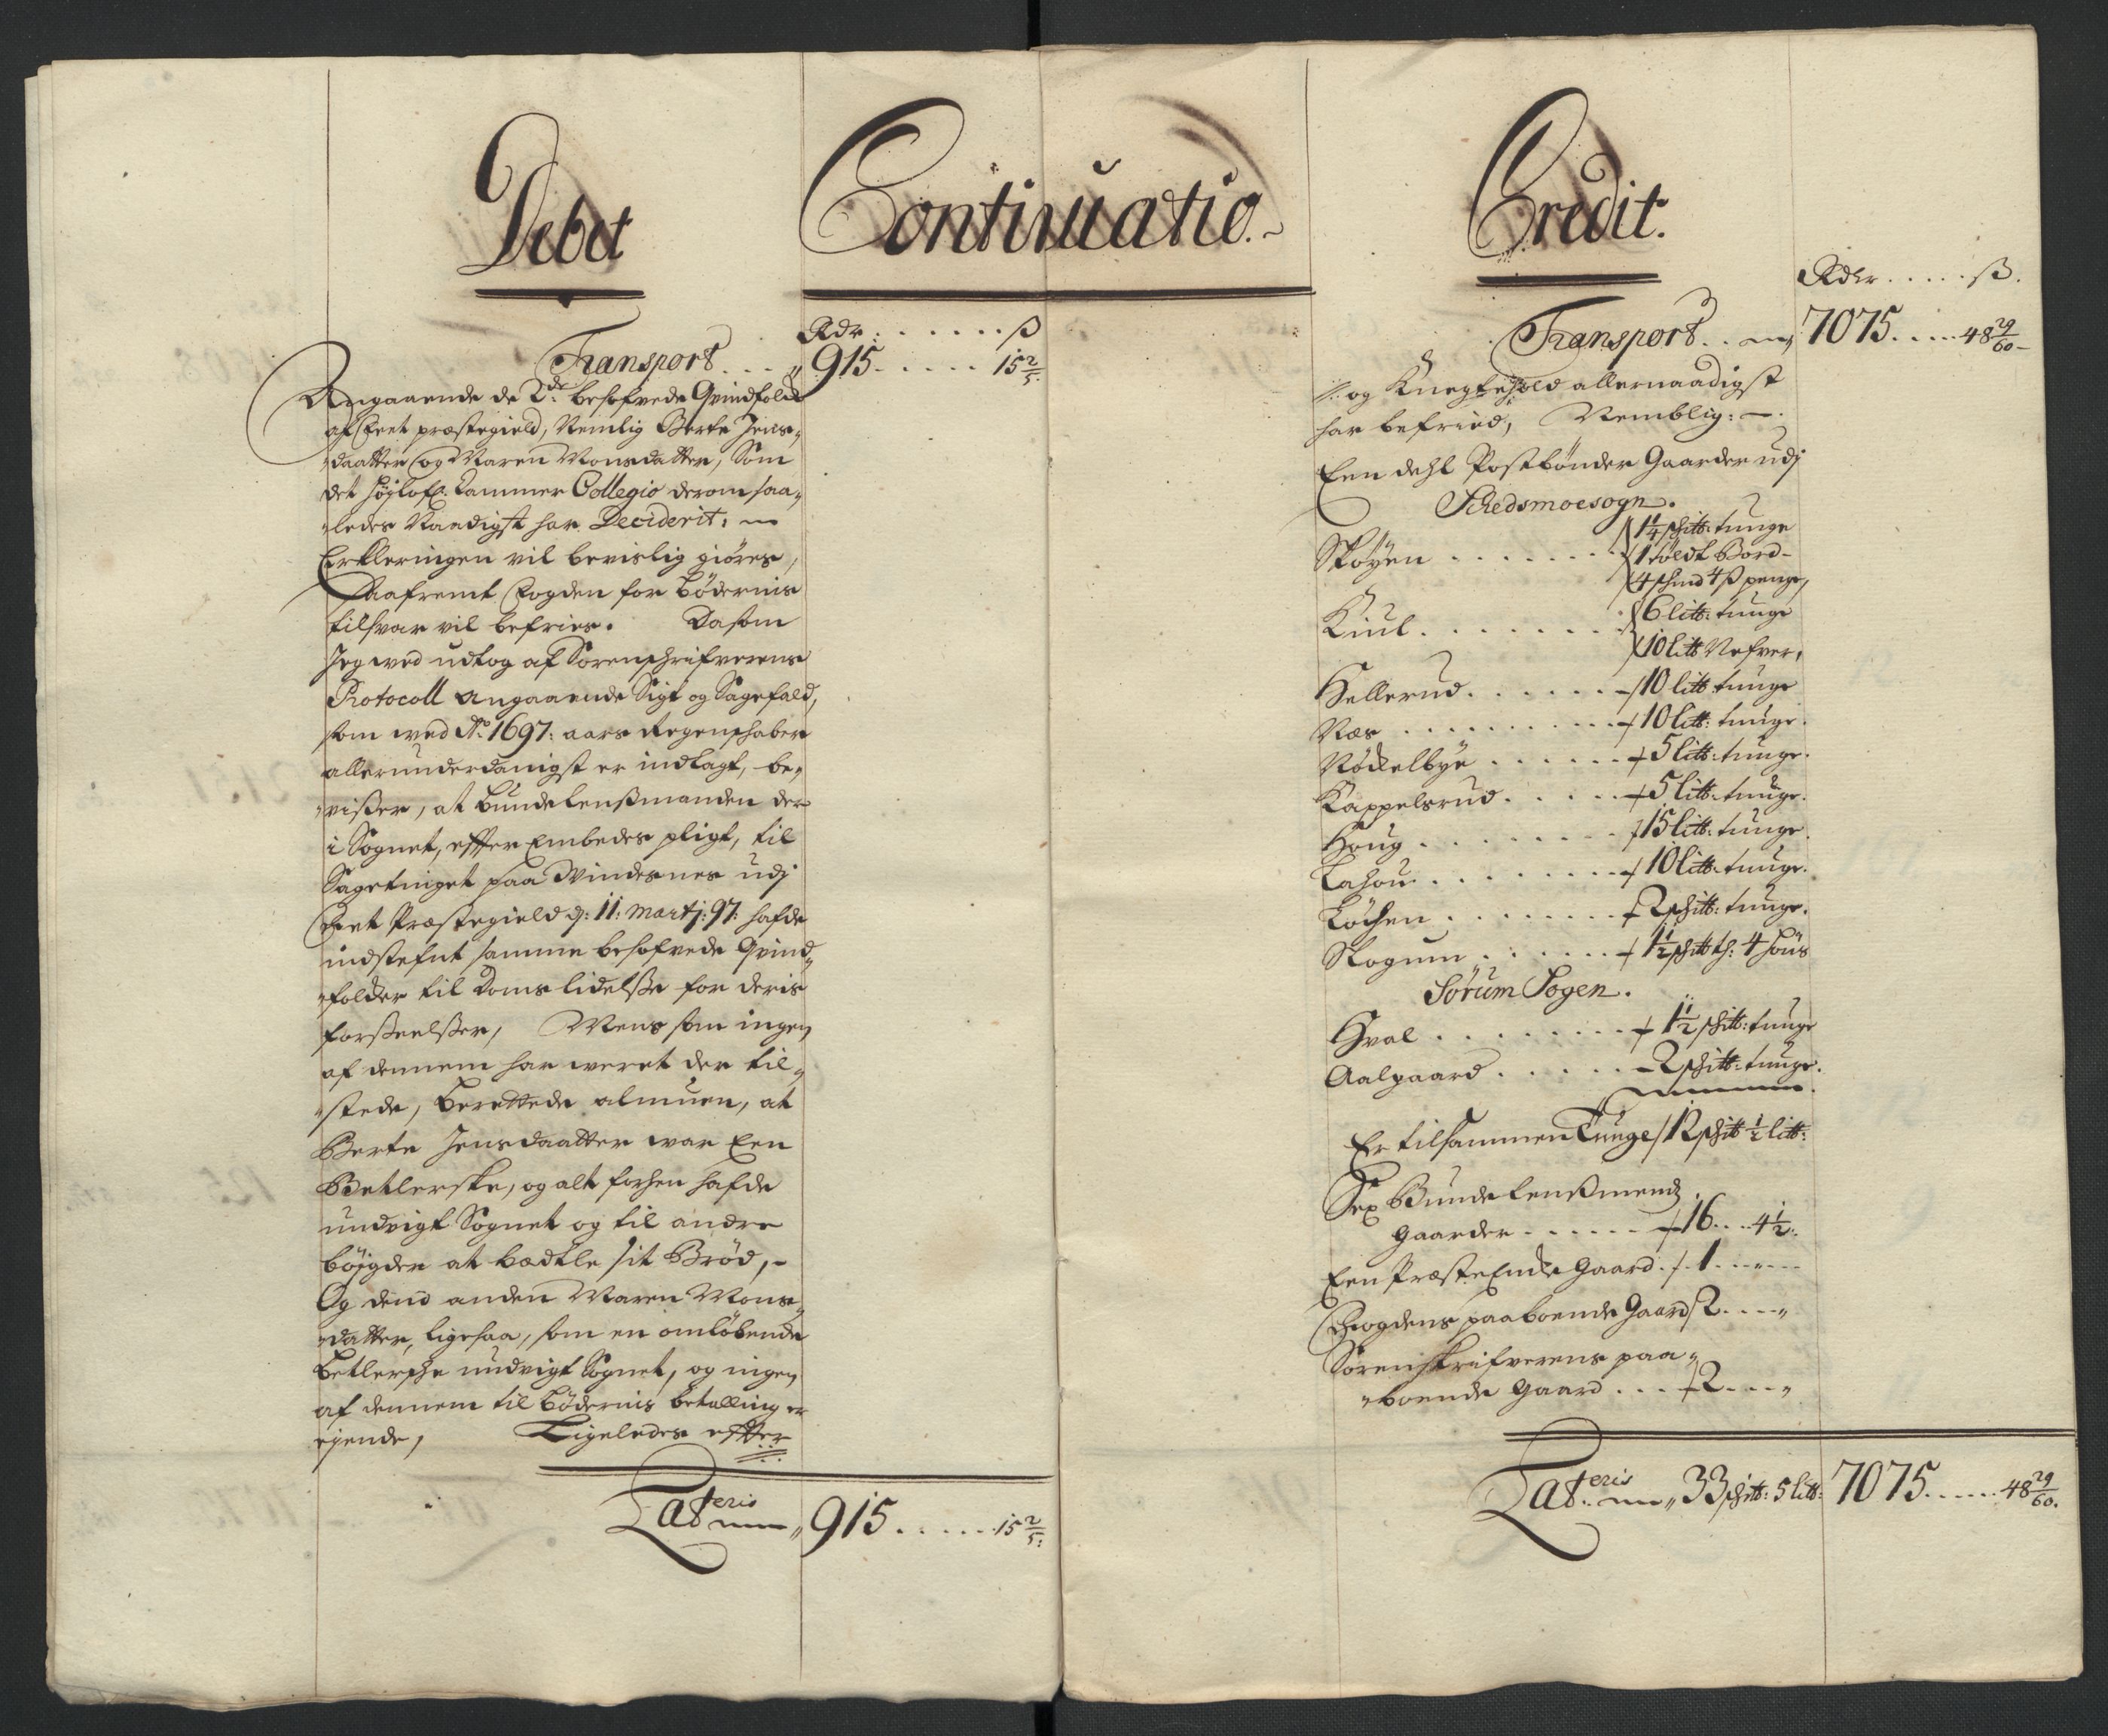 Debet
Continuatio.
Credit.
Rdr: . . . . . . ß
Transport . . . „ 915 . . . . . 15 2/5.
Angaaende de 2de besofvede Qvindfolch
af Eet præstegield, Nemlig Berte Jens„
„daatter og Maren Monsdatter, Som
det høylofl. Cammer Collegio derom saa„
„ledes Naadigst har Deciderit:
Erkleringen vil bevislig giøres,
Saafremt Fogden for bødernis
tilsvar vil befries. Da som
Jeg med udtog af Sorenschrifverens
Protocoll angaaende Sigt og Sagefald,
som med Ao: 1697: aars Regenschaber
allerunderdanigst er indlagt, be„
„visser, at bundelenßmanden der
i Sognet, effter Embedes pligt, til
Sagetinget paa Windesnes udj
Eet Præstegield d: 11: Martj: 97: hafde
indstefnt samme besofvede Qvind„
„folcker til Doms lidelße for deris
forßeelßer, Mens som ingen
af dennem har weret der til„
„stede, berettede almuen, at
Berte Jensdaatter war Een
Betlerske, og alt forhen hafde
undvigt Sognet og til andre
bøygder at bedtle sit Brød,
Og dend anden Maren Mons„
„datter, ligesaa, som en omløbende
betlersche undvigt Sognet, og ingen
af dennem til bødernis betalling er
eyende, Ligeledes effter
Lateris „ 915 . . . . . 15 2/5:
Rdlr . . . . . ß.
Transport . . 7075 . . . . 48 29/60
og Knegtehold allernaadigst
har befried, Nemblig:
Een dehl Postbønder Gaarder udj
Schedsmoesogn.
Skøyen . . . . . . . 1 1/4 schitt: tunge
1 tøldt Bord
4 schind 4 ß penge,
Kiul . . . . . . . 6 litt: tunge
10 litt Nefver,
Hellerud . . . . . . 10 litt tunge
Næs . . . . . . . . . 10 litt: tunge.
Nödelbye . . . . . . 5 litt: tunge.
Kappelsrud . . . . . 5 litt: tunge.
Houg . . . . . . . . 15 litt: tunge.
Lahou . . . . . . . . 10 litt: tunge.
Løchen . . . . . . . . 2 schitt: tunge.
Skogum . . . . . . 1 1/2 schitt th: 4 høns
Sørum Sogen.
Hval . . . . . . . . . 1 1/2 schitt: tunge
Aalgaard . . . . . . 2 schitt: tunge.
Er tilsammen Tunge / 12 schitt 1/2 litt:
Sex Bundelenßmends
Gaarder . . . . . . 16 . . . 4 1/2:
Een Præste Encke Gaard . 1 . . . .
Fvogdens paaboende Gaard / 2 . . . „
Sorenskrifverens paa„
„boende Gaard . . . 2 . . . „
Lateris „ 33 schitt: 5 litt: 7075 . . . . . 48 29/60.